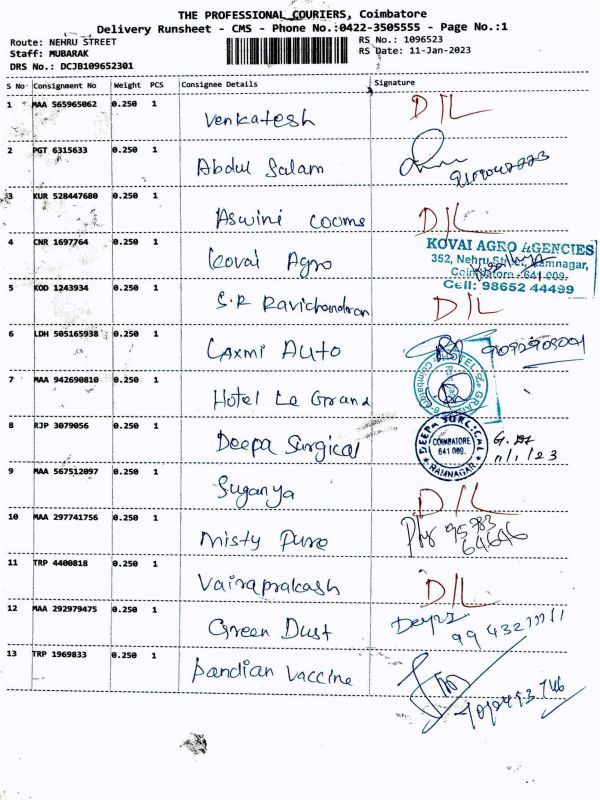 THE PROFESSIONAL COURIERS, Coimbatore
Delivery Runsheet - CMS - Phone No.:0422-3505555 - Page No.:1
Route: NEHRU STREET
Staff: MUBARAK
DRS No.: DCJB109652301
RS No.: 1096523
RS Date: 11-Jan-2023
S No Consignment No Weight PCS Consignee Details Signature
1 MAA 565965062 0.250 1 Venkatesh D/L
2 PGT 6315633 0.250 1 Abdul Salam
3 KUR 528447680 0.250 1 Aswini cooms D/L
4 CNR 1697764 0.250 1 Kovai Agro
KOVAI AGRO AGENCIES
352, Nehru Street, Ramnagar,
Coimbatore - 641 009.
Cell: 98652 44499
5 KOD 1243934 0.250 1 S.R Ravichandran D/L
6 LDH 505165938 0.250 1 Laxmi Auto
7 MAA 942690810 0.250 1 Hotel Le Grand
8 RJP 3079056 0.250 1 Deepa Surgical
DEEPA SURGICAL
COIMBATORE
641 009.
RAMNAGAR
11/1/23
9 MAA 567512097 0.250 1 Suganya D/L
10 MAA 297741756 0.250 1 Misty Pure
11 TRP 4400818 0.250 1 Vairaprakash D/L
12 MAA 292979475 0.250 1 Green Dust
13 TRP 1969833 0.250 1 Pandian Vaccine